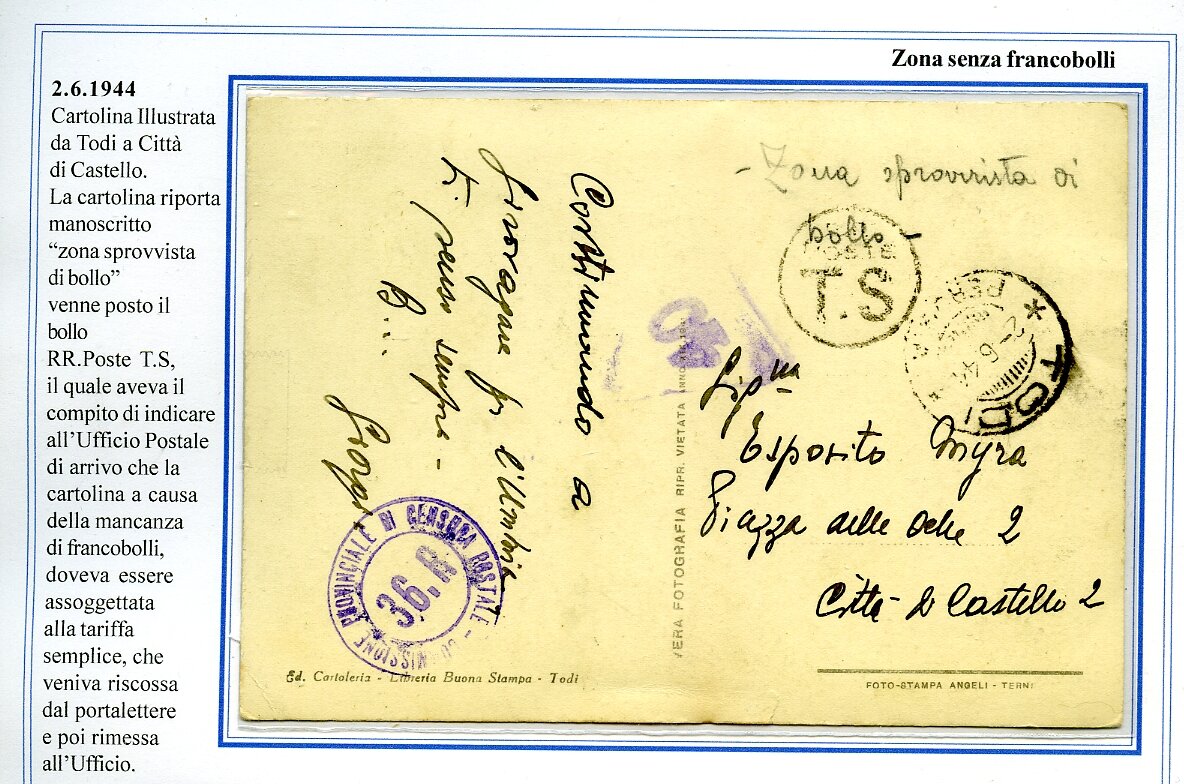 Zona senza francobolli
2.6.1944
Cartolina Illustrata
da Todi a Città
di Castello.
La cartolina riporta
manoscritto
“zona sprovvista
di bollo”
venne posto il
bollo
RR.Poste T.S,
il quale aveva il
compito di indicare
all’Ufficio Postale
di arrivo che la
cartolina a causa
della mancanza
di francobolli,
doveva essere
assoggettata
alla tariffa
semplice, che
veniva riscossa
dal portalettere
e poi rimessa
all’Ufficio.
- Zona sprovvista di
bollo -
POSTE
T.S
* TODI *
PERUGIA
2-6 44
Signa
Esposito Myra
Piazza delle Oche 2
Città di Castello 2
Continuando a
girovagare per l'Umbria
Ti penso sempre -
B...
40
VERA FOTOGRAFIA RIPR. VIETATA
COMMISSIONE PROVINCIALE DI CENSURA POSTALE -
36.R
Ed. Cartoleria - Libreria Buona Stampa - Todi
FOTO-STAMPA ANGELI - TERNI